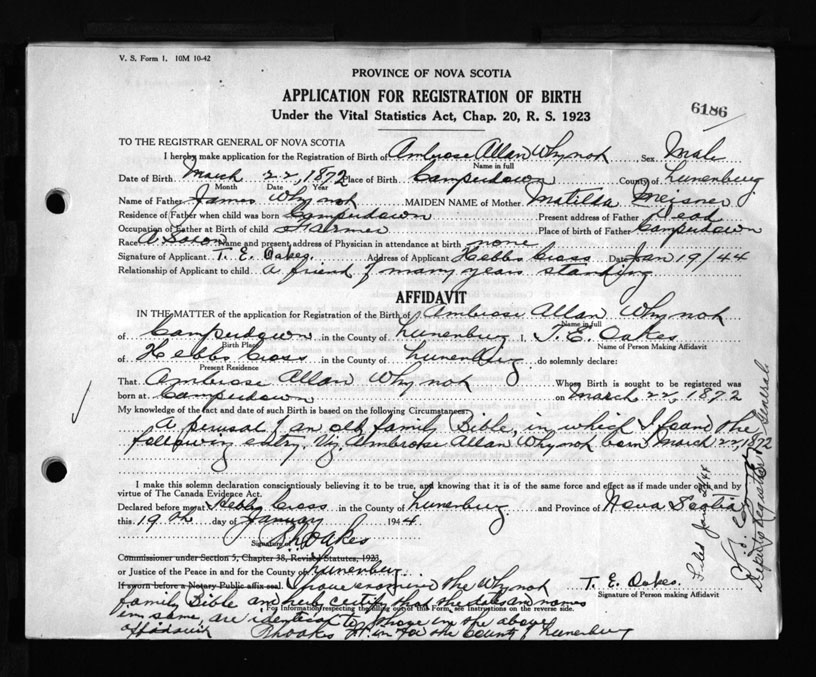 V. S. Form 1. 10M 10-42
PROVINCE OF NOVA SCOTIA
APPLICATION FOR REGISTRATION OF BIRTH
Under the Vital Statistics Act, Chap. 20, R. S. 1923
6186
TO THE REGISTRAR GENERAL OF NOVA SCOTIA
I hereby make application for the Registration of Birth of Ambrose Allan Whynot Sex Male
Name in full
Date of Birth March 22, 1872 Place of Birth Camperdown County of Lunenburg
Month Date Year
Name of Father James Whynot MAIDEN NAME of Mother Matilda Meisner
Residence of Father when child was born Camperdown Present address of Father Dead
Occupation of Father at Birth of child Farmer Place of birth of Father Camperdown
Race A Saxon Name and present address of Physician in attendance at birth none
Signature of Applicant T. E. Oakes. Address of Applicant Hebbs Cross Date Jan 19/44
Relationship of Applicant to child A friend of many years standing
AFFIDAVIT
IN THE MATTER of the application for Registration of the Birth of Ambrose Allan Whynot
Name in full
of Camperdown in the County of Lunenburg I, T. E. Oakes
Birth Place Name of Person Making Affidavit
of Hebbs Cross in the County of Lunenburg do solemnly declare:
Present Residence
That Ambrose Allan Whynot Whose Birth is sought to be registered was
born at Camperdown on March 22, 1872
My knowledge of the fact and date of such Birth is based on the following Circumstances:
A perusal of an old family Bible, in which I found the
following entry. Viz. Ambrose Allan Whynot born March 22, 1872
I make this solemn declaration conscientiously believing it to be true, and knowing that it is of the same force and effect as if made under oath and by
virtue of The Canada Evidence Act.
Declared before me at Hebbs Cross in the County of Lunenburg and Province of Nova Scotia
this 19th day of January 1944
Signature of Oakes
Commissioner under Section 5, Chapter 38, Revised Statutes, 1923,
or Justice of the Peace in and for the County of Lunenburg
If sworn before a Notary Public affix seal. I have examined the Whynot T. E. Oakes.
Signature of Person making Affidavit
family Bible and hereby certify that the dates and names
For Information respecting the filling out of this Form, see instructions on the reverse side.
in same, are identical to those in the above
affidavit Oakes in for the County of Lunenburg
Filed Jan 44
Deputy Registrar General